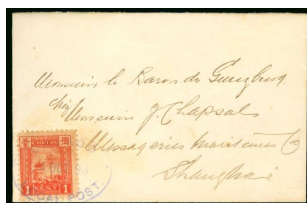 Monsieur le Baron de Gunzburg
chez Monsieur J. Chapsal
Messageries Maritimes Co
Shanghai
1 CENT 1
POST